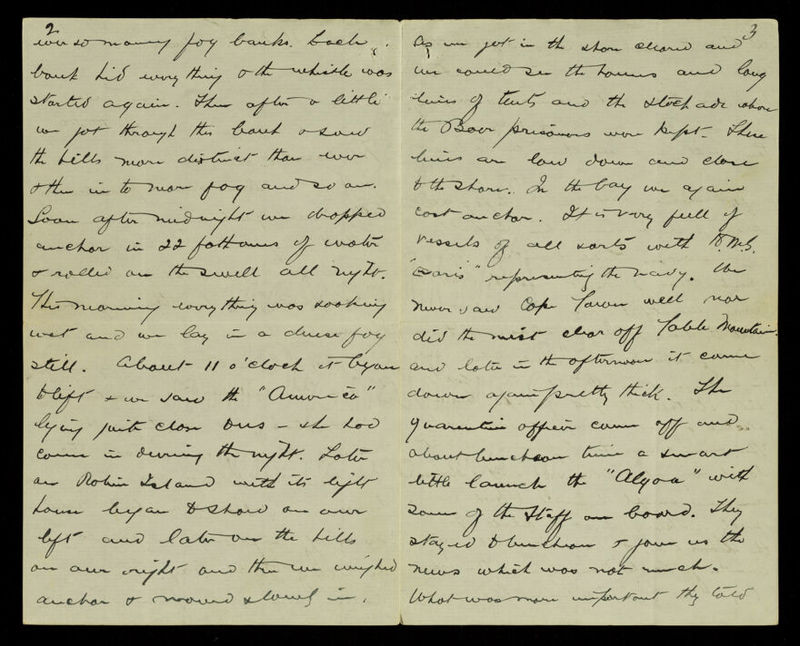 2
ever so many fog banks. Each
bank hid everything & the whistle was
started again. Then after a little
we got through this bank & saw
the hills more distinct than ever
& then in to more fog and so on.
Soon after midnight we dropped
anchor in 22 fathoms of water
& rolled on the swell all night.
This morning everything was soaking
wet and we lay in a dense fog
still. About 11 o'clock it began
to lift & we saw the "America"
lying quite close to us - she had
come in during the night. Later
on Robin Island with its light
house began to show on our
left and later on the hills
on our right and then we weighed
anchor & moved slowly in.
3
As we got in the shore cleared and
we could see the houses and long
lines of tents and the stockade where
the Boer prisoners were kept. These
lines are low down and close
to the shore. In the bay we again
cast anchor. It is very full of
vessels of all sorts with H.M.S.
representing the navy. We
never saw Cape Town well nor
did the mist clear off Table Mountain
and later in the afternoon it came
down again pretty thick. The
quarantine officer came off and
about luncheon time a smart
little launch the "Algoa" with
some of the Staff on board. They
stayed to luncheon & gave us the
news which was not much.
What was more important they told